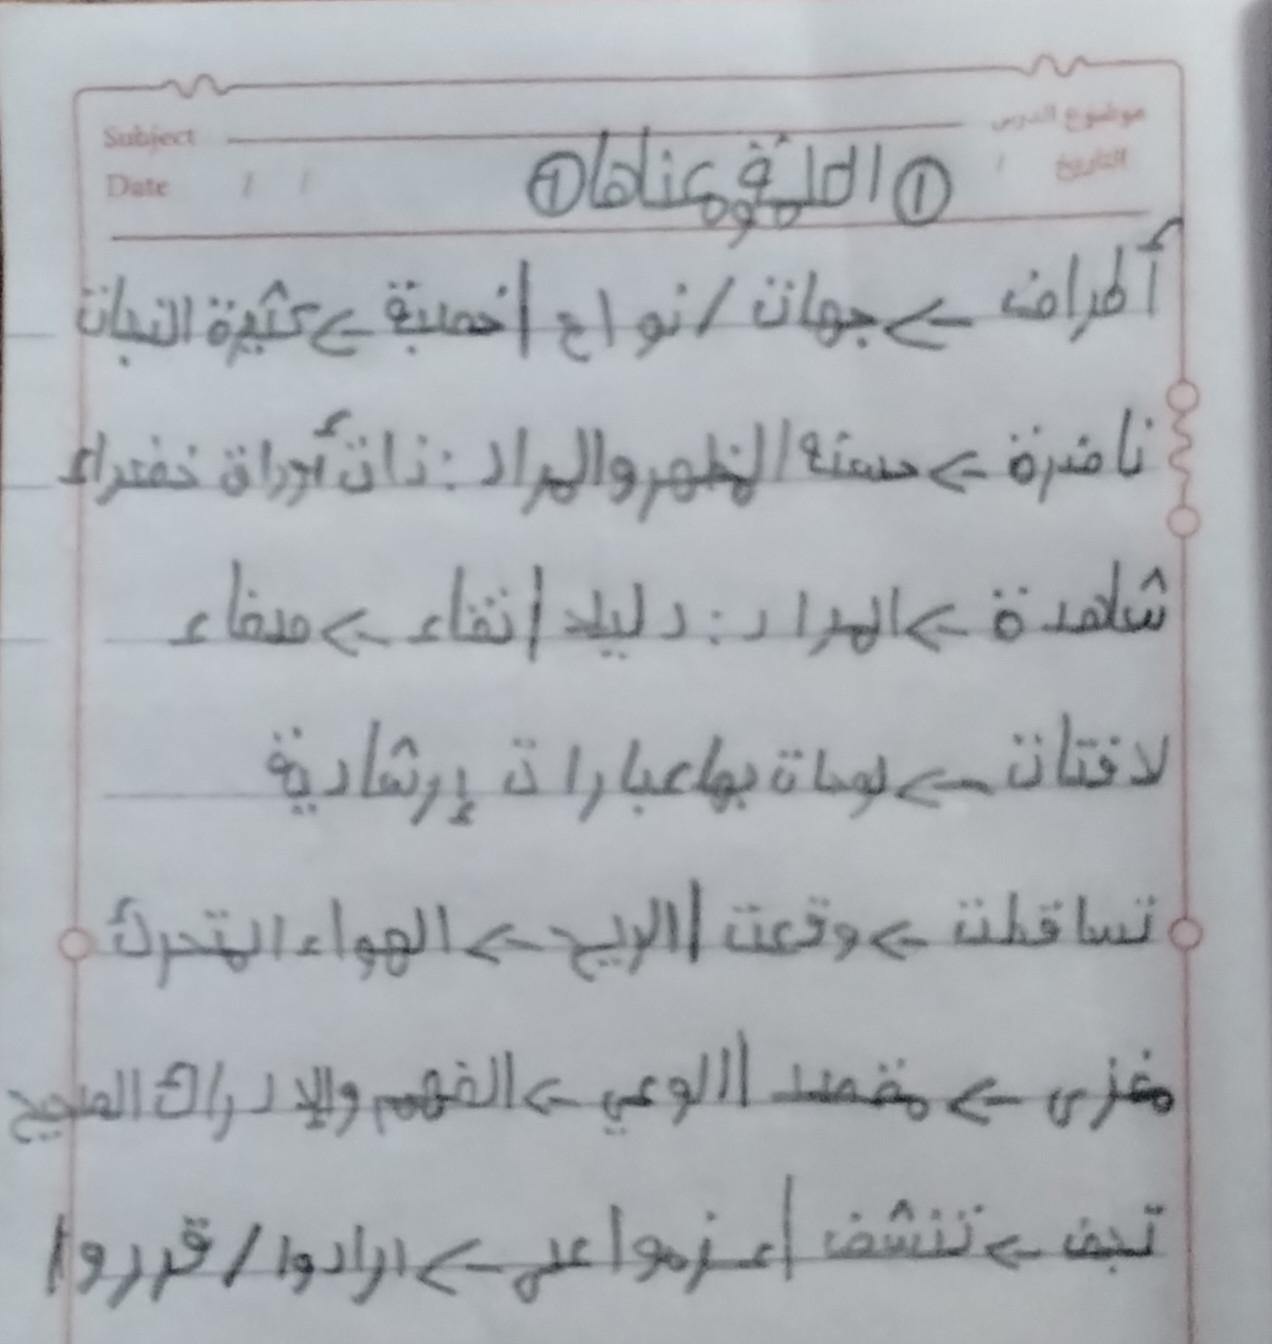 Subject موضوع الدرس
Date / / التاريخ /
① الكلمة ومعناها ①
أطراف > جهات / نواح | خصبة > كثيرة النبات
ناضرة > حسنة المظهر والمراد : ذات أوراق خضراء
شاهدة > المراد : دليلا | نقاء > صفاء
لافتات > لوحات بها عبارات إرشادية
تساقطت > وقعت | الريح > الهواء المتحرك
مغزى > مقصد | الوعي > الفهم والإدراك الصحيح
تجف > تنشف | عزموا على > ارادوا / قرروا